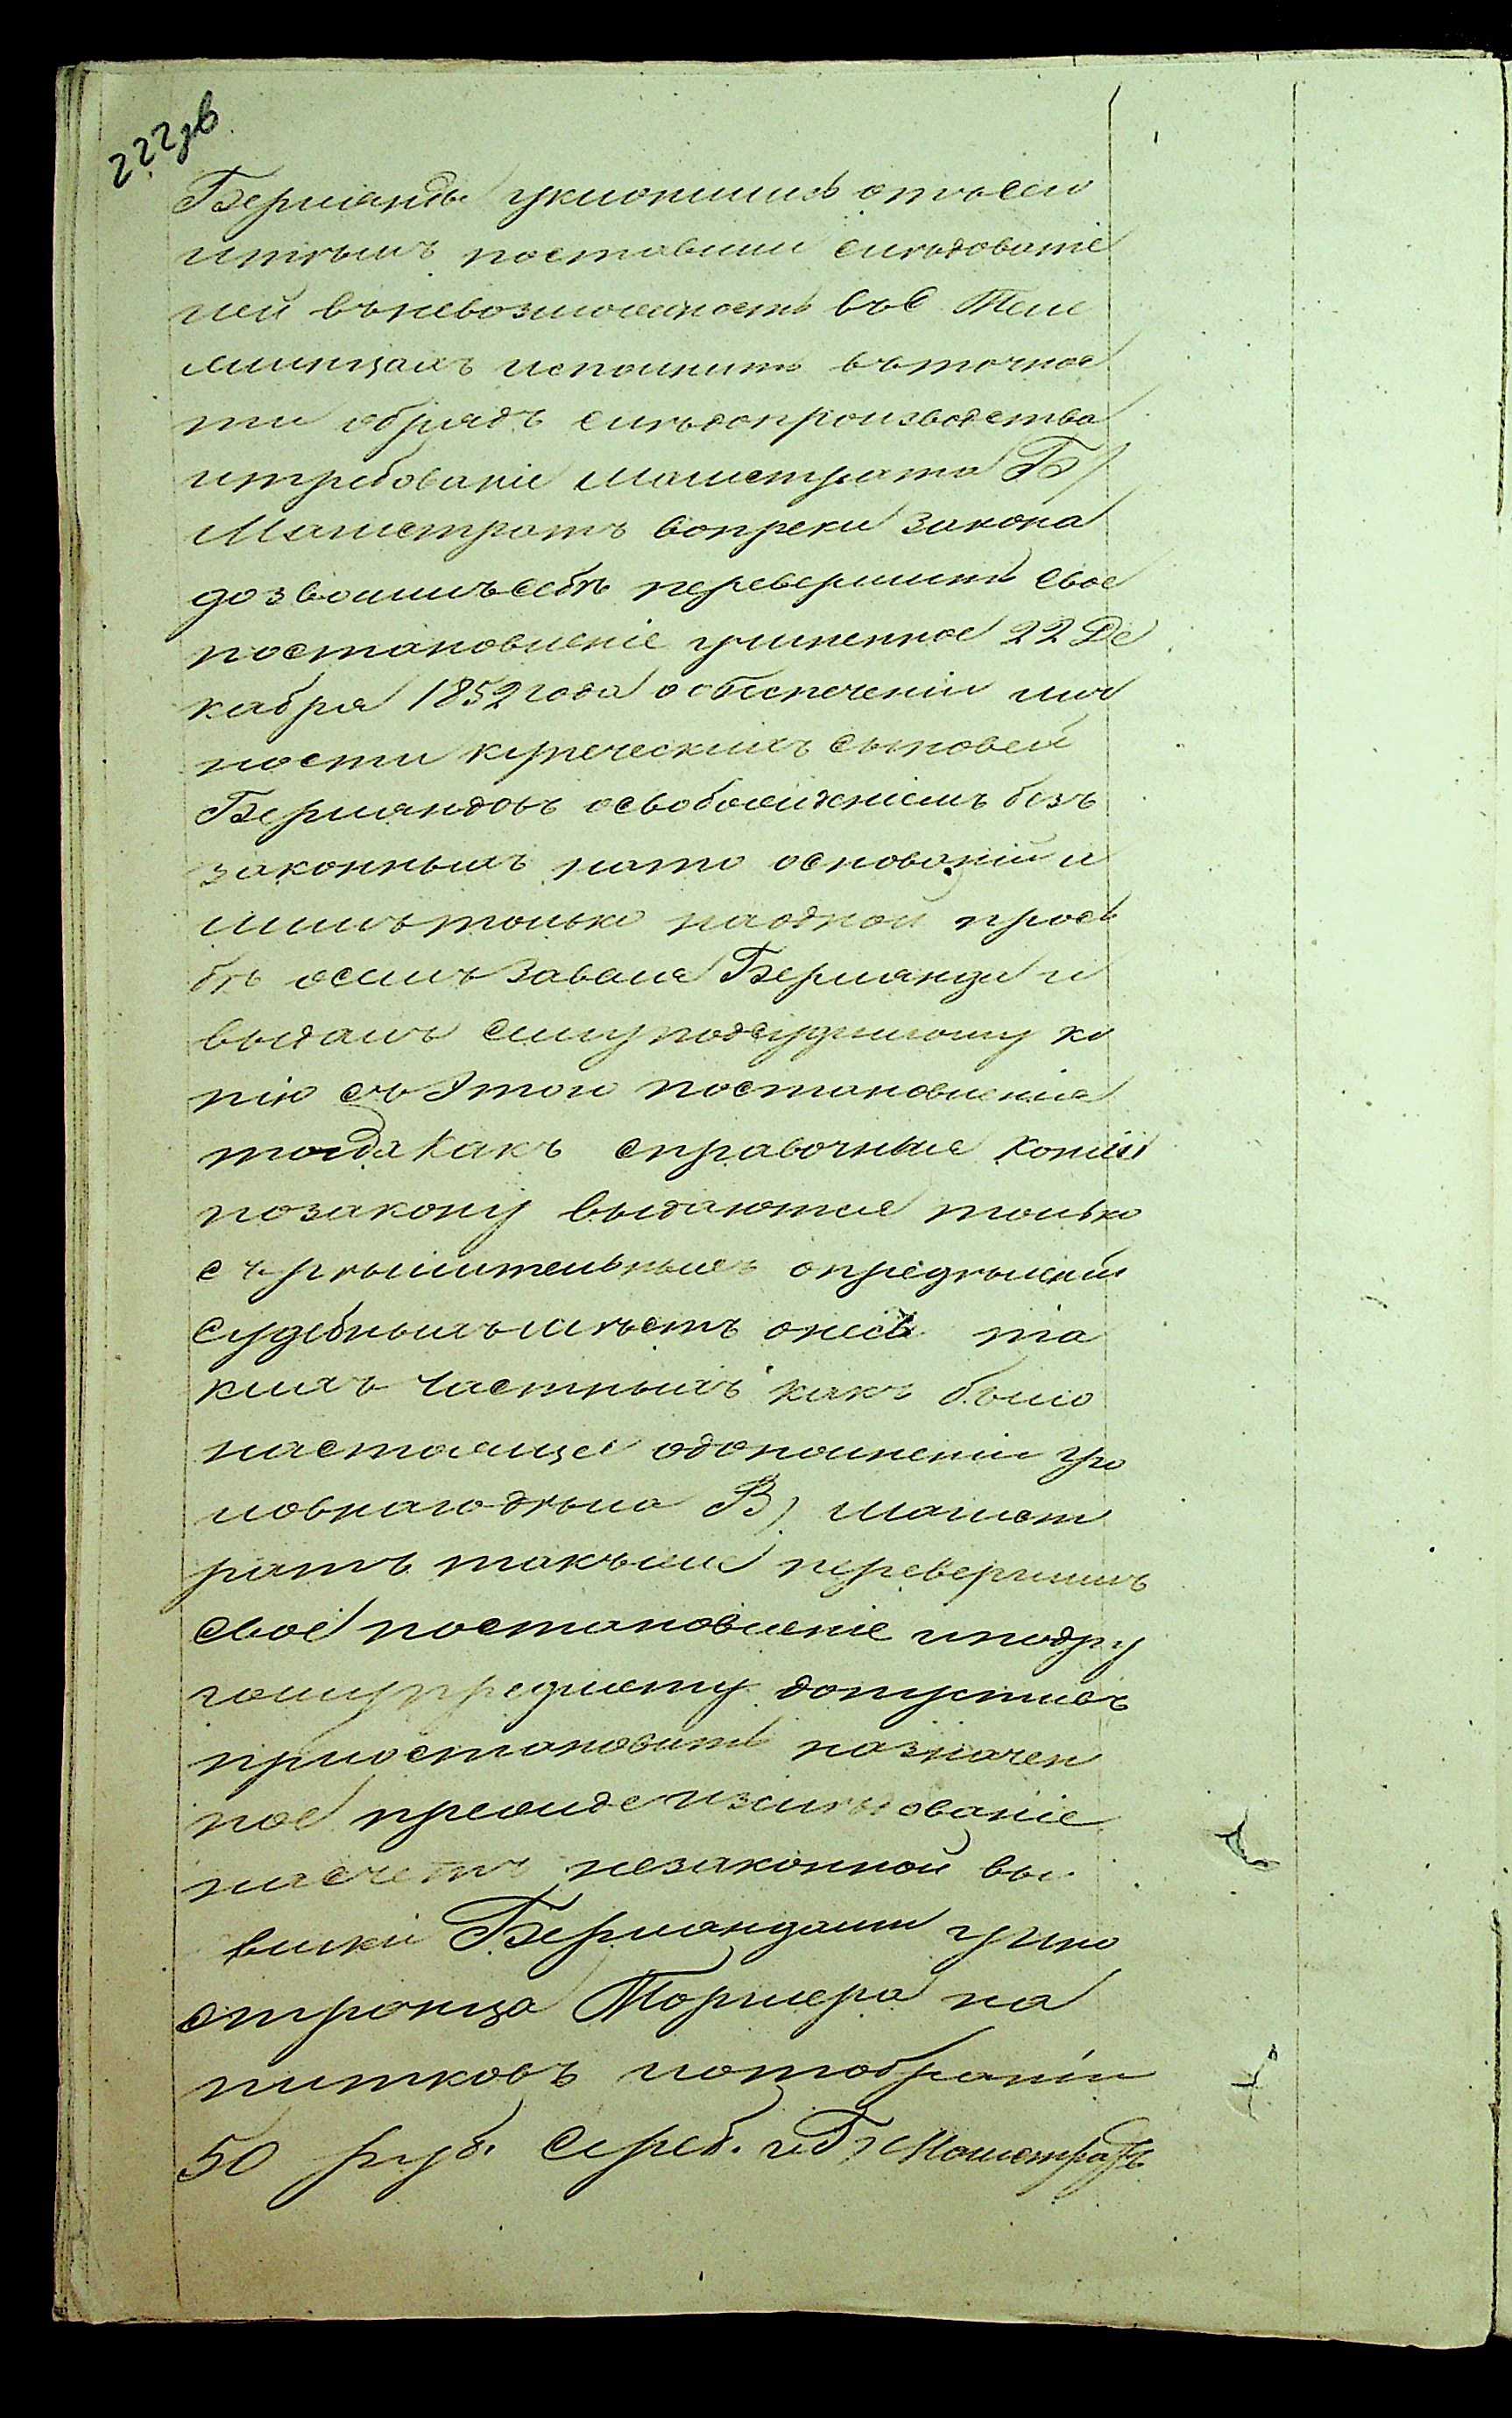 222 об
Берлянды уклонились отъ сего
и тѣмъ поставили слѣдовате
лей въ невозможность въ С. Теле
шицахъ исполнить въ точнос
ти обрядъ слѣдопроизводства
и требованіе Магистрата Б/
Магистратъ вопреки закона
дозволилъ себѣ перевершить свое
постановленіе учиненное 22 Де
кабря 1852 года о обезпеченіи лич
ности купеческихъ сыновей
Берляндовъ освобожденіемъ безъ
законныхъ на то основаній и
лишь только на одной прось
бѣ о семъ Завеля Берлянда и
выдалъ сему подсудимому ко
пію съ этого постановленія
тогда какъ справочные копіи
по закону выдаются только
съ рѣшительныхъ опредѣленій
судебныхъ мѣстъ а не съ та
кихъ частныхъ какъ было
настоящее о дополненіи уго
ловнаго дѣла В) магист
ратъ также перевершилъ
свое постановленіе и по дру
гому предмету допустивъ
приостановить назначен
ное прежде изслѣдованіе
на счетъ незаконной вы
емки Берляндами у ино
странца Торнера на
питковъ и отобраніи
50 руб. сереб. и Г) Магистратъ